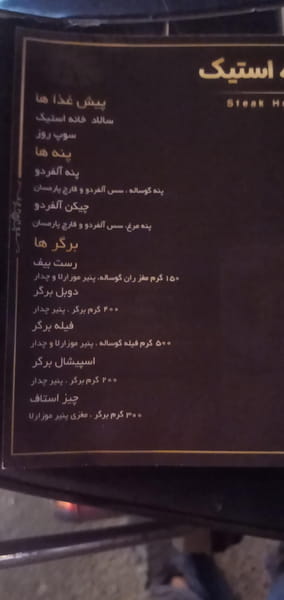 ه استیک
Steak Ho
پیش غذا ها
سالاد خانه استیک
سوپ روز
پنه ها
پنه آلفردو
پنه گوساله ، سس آلفردو و قارچ پارمسان
چیکن آلفردو
پنه مرغ، سس آلفردو و قارچ پارمسان
برگر ها
رست بیف
۱۵۰ گرم مغز ران گوساله، پنیر موزارلا و چدار
دوبل برگر
۴۰۰ گرم برگر ، پنیر چدار
فیله برگر
۵۰۰ گرم فیله گوساله ، پنیر موزارلا و چدار
اسپیشال برگر
۲۰۰ گرم برگر ، پنیر چدار
چیز استاف
۳۰۰ گرم برگر ، مغزی پنیر موزارلا